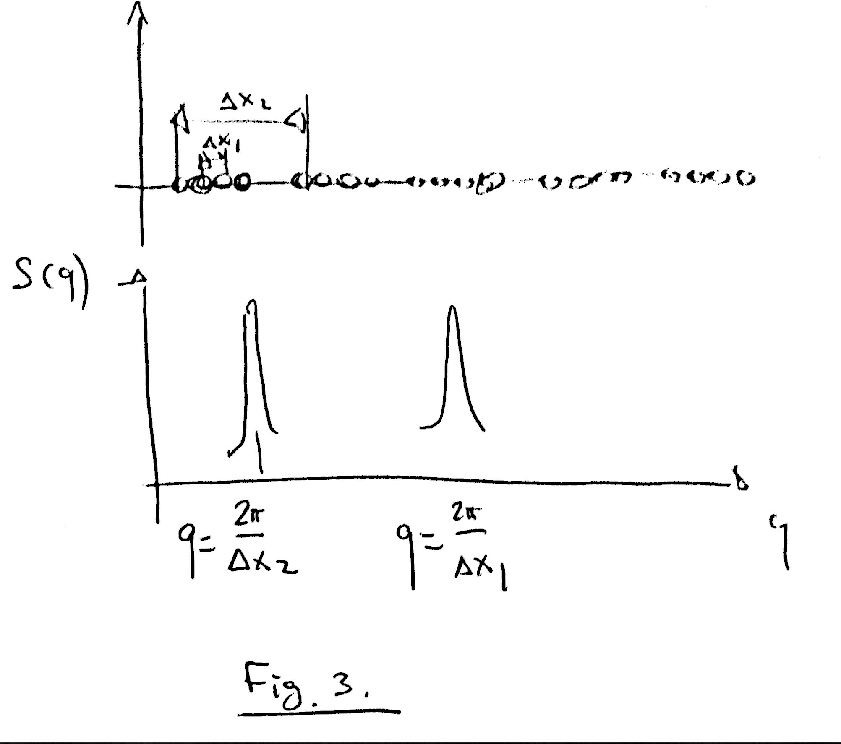 Δx₂
Δx₁
S(q)
q = 2π/Δx₂
q = 2π/Δx₁
q
Fig. 3.